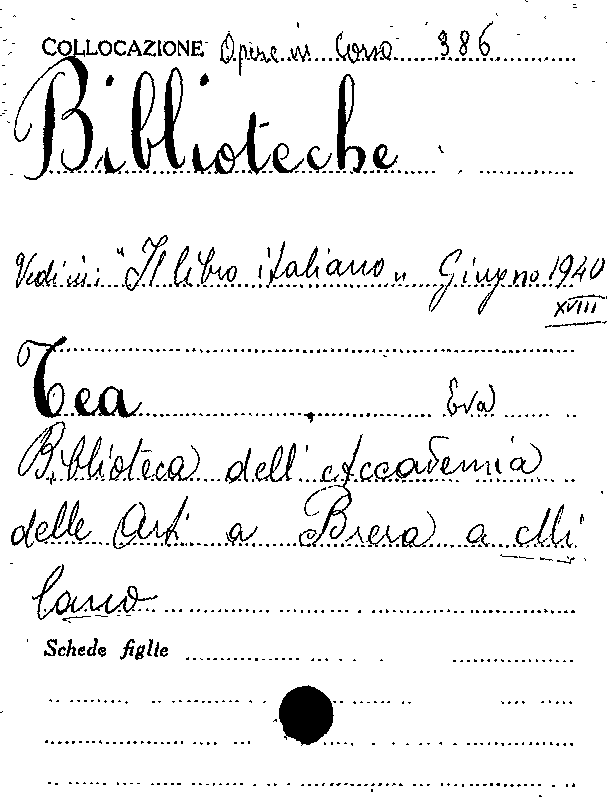 COLLOCAZIONE Opere in Corso 386
Biblioteche
Vedi in: "Il libro italiano„ Giugno 1940
XVIII
Tea Eva
Biblioteca dell'Accademia
delle Arti a Brera a Mi
lano
Schede figlie